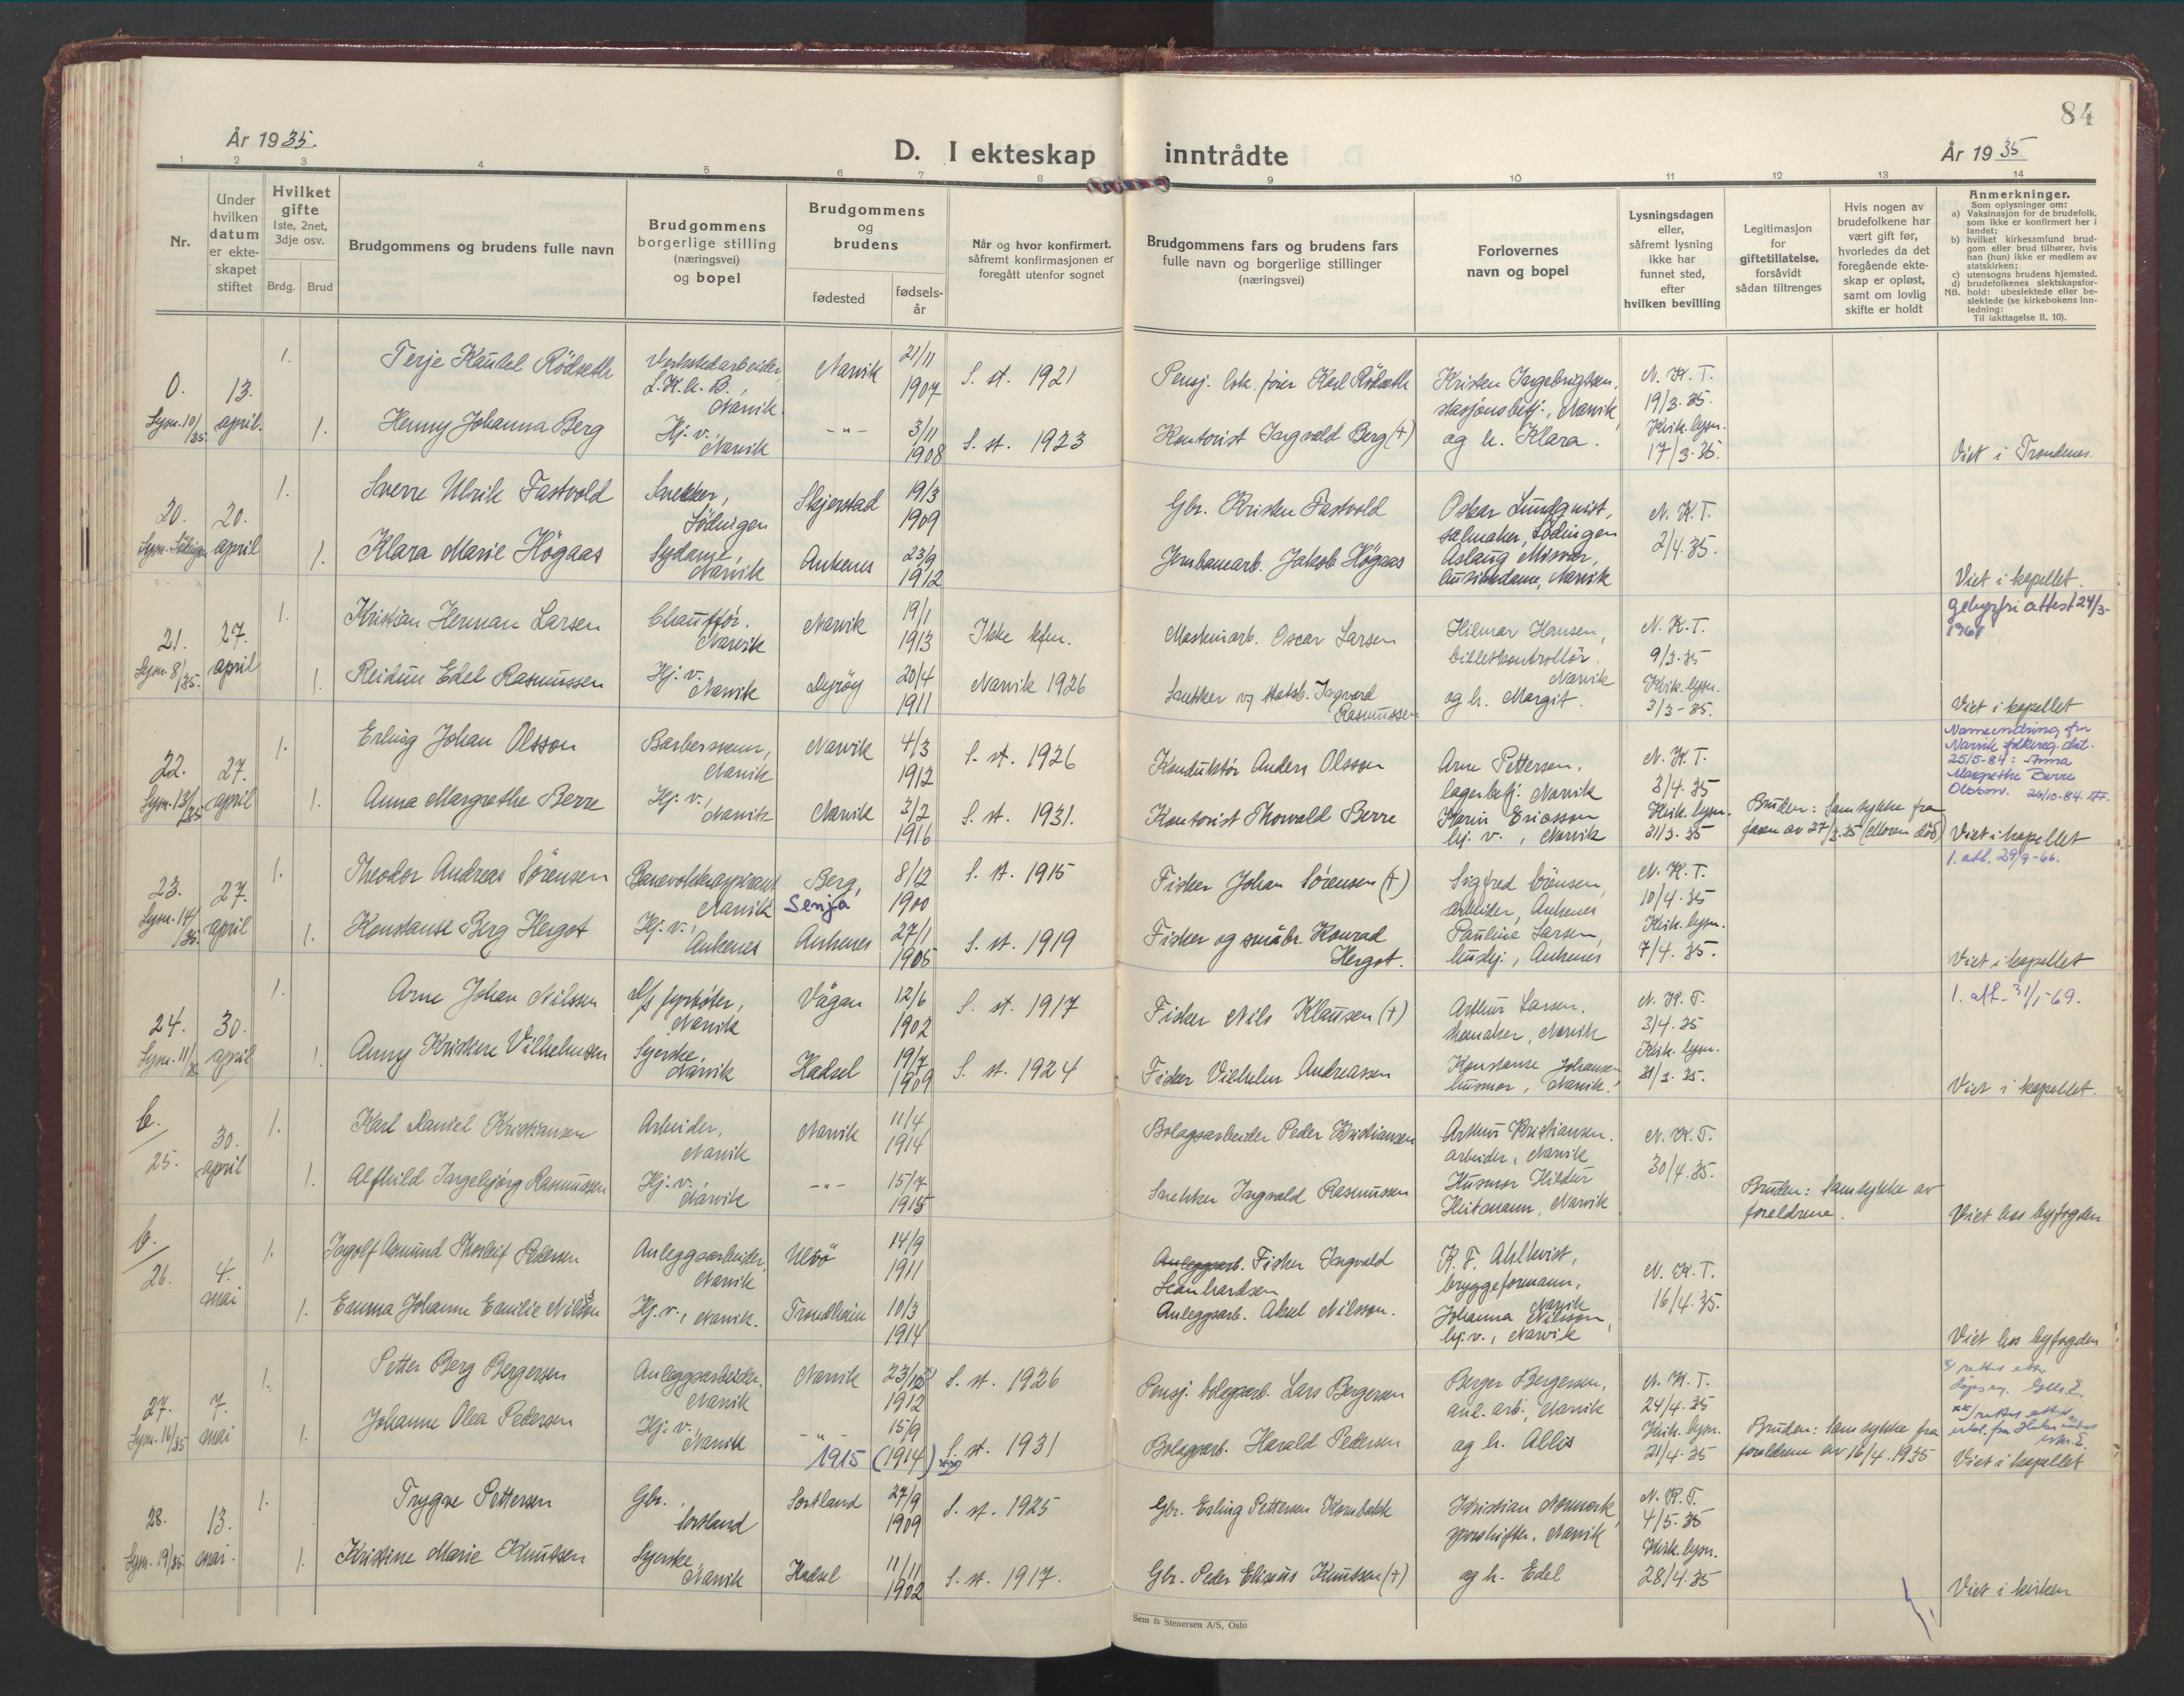 84
År 1935.
D. I ekteskap inntrådte
År 1935
1 2 3 4 5 6 7 8 9 10 11 12 13 14
Nr.
Under hvilken datum er ekte- skapet stiftet
Hvilket gifte 1ste, 2net, 3dje osv.
Brdg. Brud
Brudgommens og brudens fulle navn
Brudgommens borgerlige stilling (næringsvei) og bopel
Brudgommens og brudens
fødested
fødsels- år
Når og hvor konfirmert, såfremt konfirmasjonen er foregått utenfor sognet
Brudgommens fars og brudens fars fulle navn og borgerlige stillinger (næringsvei)
Forlovernes navn og bopel
Lysningsdagen eller, såfremt lysning ikke har funnet sted, efter hvilken bevilling
Legitimasjon for giftetillatelse, forsåvidt sådan tiltrenges
Hvis nogen av brudefolkene har vært gift før, hvorledes da det foregående ekte- skap er opløst, samt om lovlig skifte er holdt
Anmerkninger.
Som oplysninger om:
a) Vaksinasjon for de brudefolk, som ikke er konfirmert her i landet;
b) hvilket kirkesamfund brud- gom eller brud tilhører, hvis han (hun) ikke er medlem av statskirken;
c) utensogns brudens hjemsted.
d) brudefolkenes slektskapsfor- hold: ubeslektede eller be- slektede (se kirkebokens inn- ledning:
NB.
Til iakttagelse II, 10).
0. Lysn. 10/35. 13. april.
1. Terje Kautel Rödseth
Verkstedarbeider, L.K.A.B., Narvik.
Narvik 21/11 1907
S. st. 1921
Pensj. lok. fører Karl Rödseth
Kristen Ingebrigtsen, stasjonsbetj., Narvik
N. K. T. 19/3.35.
1. Henny Johanna Berg
Hj. v., Narvik
-"- 3/11 1908
S. st. 1923
Kontorist Ingvald Berg (+)
og h. Klara.
Kirk. lysn. 17/3.35.
Viet i Trondenes.
20. Lysn. Lödingen 20. april
1. Sverre Ulrik Fastvold
Snekker, Lödingen
Skjerstad 19/3 1909
Gbr. Kristen Fastvold
Oskar Lundqvist, salmaker, Lödingen
N. K. T. 2/4.35.
1. Klara Marie Högaas
Sydame, Narvik
Ankenes 23/9 1912
Jernbanearb. Jakob Högaas
Aslaug Misvær, Narvik
Viet i kapellet.
21. Lysn. 8/35. 27. april
1. Kristian Herman Larsen
Chauffør. Narvik
Narvik 19/1 1913
Ikke kfm.
Maskinarb. Oscar Larsen
Hilmar Hansen, billettkontrollör. Narvik
N. K. T. 9/3.35
gebyrfri attest 24/3-
1. Reidun Edel Rasmussen
Hj. v. Narvik
Dyröy 20/4 1911
Narvik 1926
Snekker v/ statsb. Ingvard Rasmussen
og h. Margit.
Kirk. lysn. 3/3-35.
Viet i kapellet
22. Lysn. 13/35 27. april
1. Erling Johan Olsson
Barbersvenn, Narvik
Narvik 4/3 1912
S. st. 1926
Konduktör Anders Olsson
Arne Pettersen, lagerbetj. Narvik
N. K. T. 3/4.35
Navneendring fra Narvik folkereg. dat. 25/5-84: Anna Margrethe Berre Olsson. 26/10-84
1. Anna Margrethe Berre
Hj. v., Narvik
Narvik 3/2 1916
S. st. 1931.
Kontorist Thorvald Berre
Karin Ericsson hj. v., Narvik
Kirk. lysn. 31/3.35
Bruden: Samtykke fra faren av 27/3.35 (Moren död)
Viet i kapellet
23. Lysn. 14/35. 27. april
1. Theodor Andreas Sörensen
Banevokteraspirant Narvik
Berg, Senja 8/12 1900
S. st. 1915
Fisker Johan Sörensen (+)
Sigfred Sörensen, arbeider, Ankenes
N. K. T. 10/4.35
1. att. 29/9-66.
1. Konstanse Berg Hergot
Hj. v., Ankenes
Ankenes 27/1 1905
S. st. 1919
Fisker og småbr. Konrad Hergot.
Pauline Larsen, Ankenes
Kirk. lysn. 7/4.35.
Viet i kapellet
24. Lysn. 11/35 30. april
1. Arne Johan Nilssen
fyrböter, Narvik
Vågan 12/6 1902
S. st. 1917
Fisker Nils Klausen (+)
Arthur Larsen, Narvik
N. K. T. 3/4.35
1. att. 31/1-69.
1. Anny Kristine Vilhelmsen
Syerske, Narvik
Hadsel 19/7 1909
S. st. 1924
Fisker Vilhelm Andreassen
Konstanse Johansen husmor, Narvik.
Kirk. lysn. 31/3.35.
Viet i kapellet.
b./25. 30. april
1. Karl Daniel Kristiansen
Arbeider, Narvik
Narvik 11/4 1914
Bolagsarbeider Peder Kristiansen
Arthur Kristiansen. arbeider, Narvik
N. K. T. 30/4.35.
1. Alfhild Ingebjörg Rasmussen
Hj. v., Narvik
-"- 15/7 1915
Snekker Ingvald Rasmussen
Husmor Hildur Heitmann, Narvik
Bruden: Samtykke av foreldrene.
Viet hos byfogden
b./26. 4. mai
1. Ingolf Asmund Thorleif Pedersen
Anleggsarbeider, Narvik
14/9 1911
Anleggsarb. Fisker Ingvald Leonhardsen
K. F. Ahlkvist, bryggeformann, Narvik
N. K. T. 16/4.35.
1. Emma Johanne Emilie Nilsson
Hj. v., Narvik.
Trondheim 10/3 1914
Anleggsarb. Aksel Nilsson.
Johanna Nilsson, hj. v., Narvik
Viet hos byfogden
27. Lysn. 16/35 7. mai
1. Petter Berg Bergersen
Anleggsarbeider. Narvik
Narvik 23/12 1912
S. st. 1926
Pensj. bolagsarb. Lars Bergersen
Berger Bergersen, anl. arb., Narvik
N. K. T. 24/4.35
1. Johanne Olea Pedersen
Hj. v., Narvik
-"- 15/9 1915 (1914)
S. st. 1931
Bolagsarb. Harald Pedersen
og h. Allis
Kirk. lysn. 21/4.35
Bruden: Samtykke fra foreldrene av 16/4.1935
Viet i kapellet
28. Lysn. 19/35 13. mai.
1. Trygve Pettersen
Gbr., Sortland
Sortland 27/9 1909
S. st. 1925
Gbr. Erling Pettersen Kornbakk
Kristian Normark, Narvik
N. K. T. 4/5.35
1. Kristine Marie Knutsen
Syerske, Narvik
Hadsel 11/11 1902
S. st. 1917.
Gbr. Peder Elisæus Knutsen (+)
og h. Edel
Kirk. lysn. 28/4.35
Viet i kirken
Sem & Stenersen A/S, Oslo